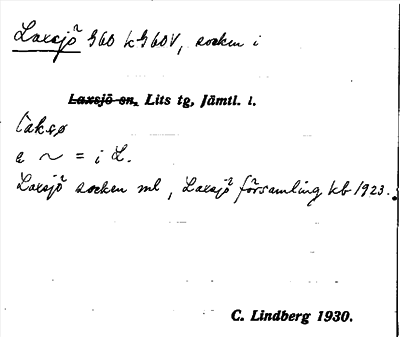 Laxsjö G60 k G60V, socken i
Laxsjö sn, Lits tg, Jämtl. l.
laksø
a ~ = i L.
Laxsjö socken ml, Laxsjö församling kb 1923.
C. Lindberg 1930.